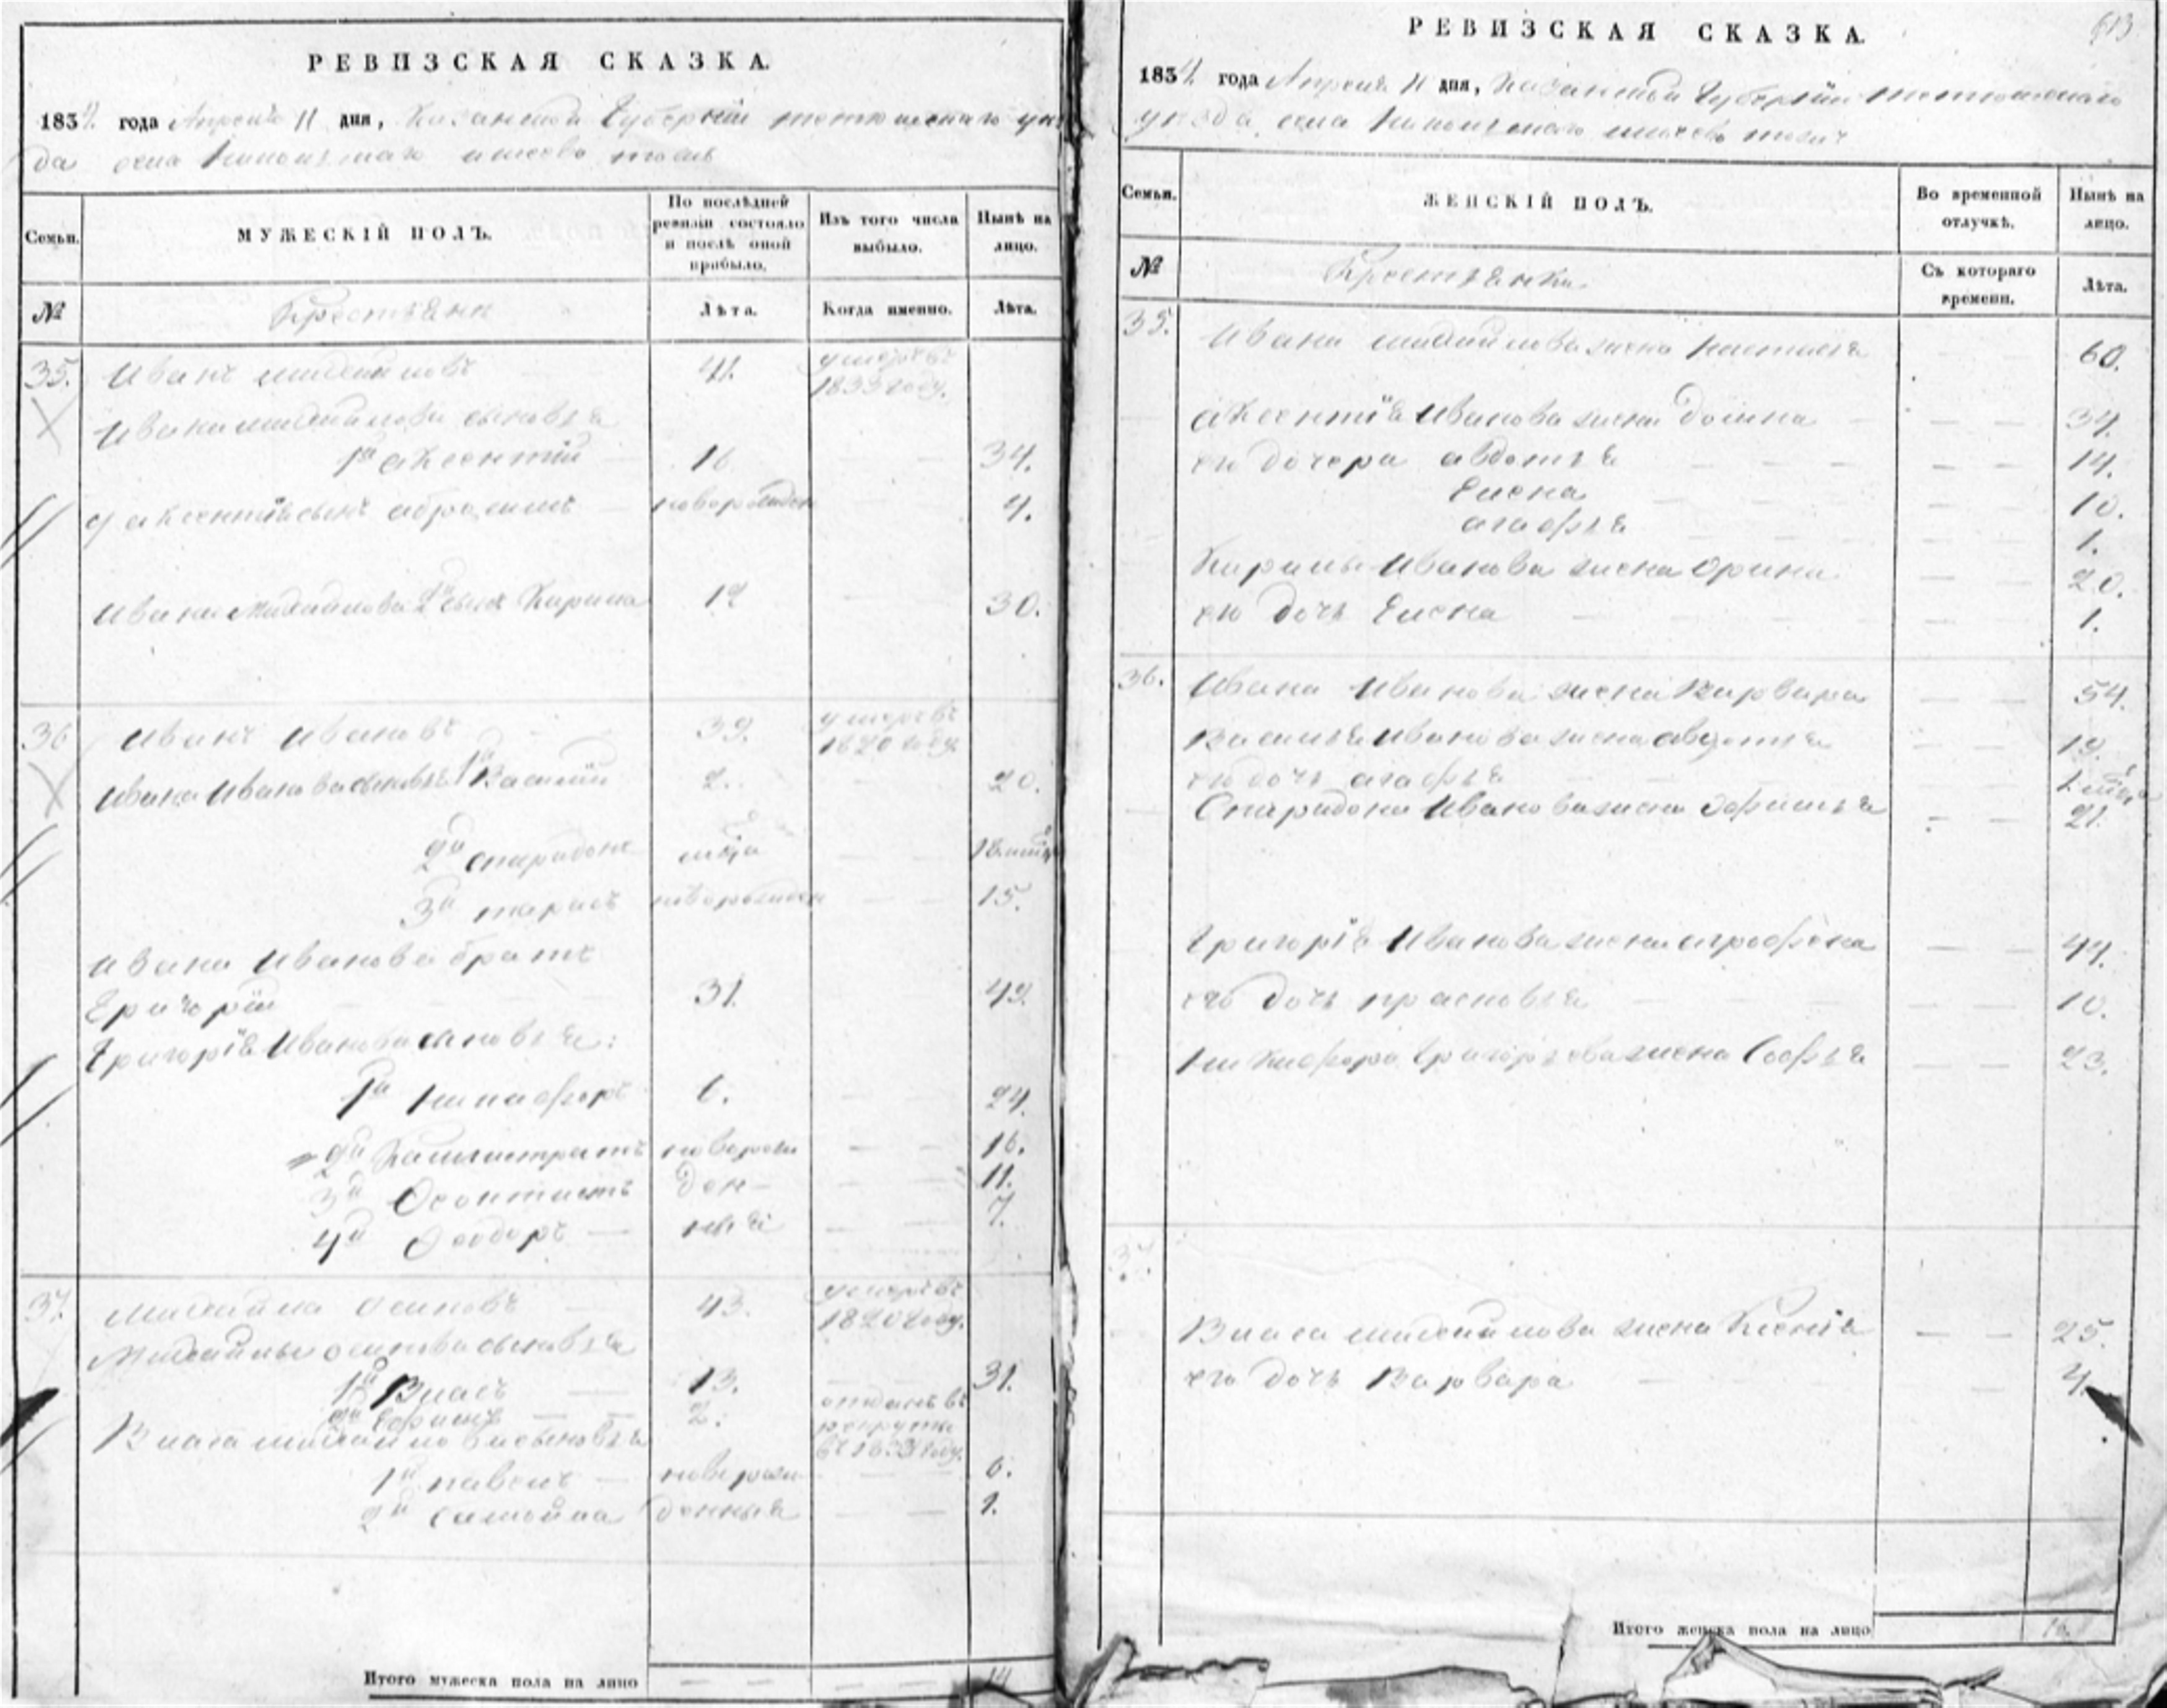 РЕВИЗСКАЯ СКАЗКА.
1834 года Апреля 11 дня, Казанской Губернїи тетюшскаго уез
да села
МУЖЕСКІЙ ПОЛЪ.
Семьи.
По послѣдней ревизіи состояло и послѣ оной прибыло.
Изъ того числа выбыло.
Нынѣ на лицо.
№
Крестьяни
Лѣта.
Когда именно.
Лѣта.
35. Иванъ михайловъ 41. умеръ въ 1833 году.
Ивана михайлова сыновья
1й аксентїй 16 — — 34.
у аксентїя сынъ абросимъ новорожден — — 4.
Ивана Михайлова 2й сынъ Кирила 12 — — 30.
36 Иванъ Ивановъ 39. умеръ въ 1820 году
Ивана Иванова сыновья 1й Василїй 2. 20.
2й спиридонъ — — 18
3й тарасъ новорожден — — 15.
Ивана Иванова братъ
Григорїй 31. 49.
Григорїя Иванова сыновья:
1й Никифоръ 6. — — 24.
2й Калистратъ новорож — — 16.
3й Феоктистъ ден- — — 11.
4й Феодоръ — ныя — — 7.
37. Михайла осиповъ 43. умеръ въ 1820 году.
Михайлы осипова сыновья
1й Власъ 13. — — 31.
2й Ефимъ — — 2. отданъ въ рекруты въ 1831 году.
Власа михайлова сыновья
1й павелъ — новорож — — 6.
2й самойла денныя — — 1.
Итого мужеска пола на лицо — — — — 14
РЕВИЗСКАЯ СКАЗКА.
613
1834 года Апреля 11 дня, Казанской Губернїи тетюшскаго
уезда села
Семьи.
ЖЕНСКІЙ ПОЛЪ.
Во временной отлучкѣ.
Нынѣ на лицо.
№
Крестьянки
Съ котораго времени.
Лѣта.
35. Ивана михайлова жена настасья — — 60.
аксентїя Иванова жена домна — — 34.
его дочери авдотья — — 14.
Елена — — 10.
агафья — — 1.
Кирилы Иванова жена орина — — 20.
его дочь Елена — — 1.
36. Ивана Иванова жена Варвара — — 54.
Василья Иванова жена авдотья — — 19.
его дочь агафья
Спиридона Иванова жена Эфимья — — 21.
Григорїя Иванова жена аграфена — — 44.
его дочь прасковья — — 10.
Никифора Григорьева жена Софья — — 23.
37.
Власа михайлова жена Ксенїя — — 25.
его дочь Варвара — 4.
Итого женска пола на лицо 16